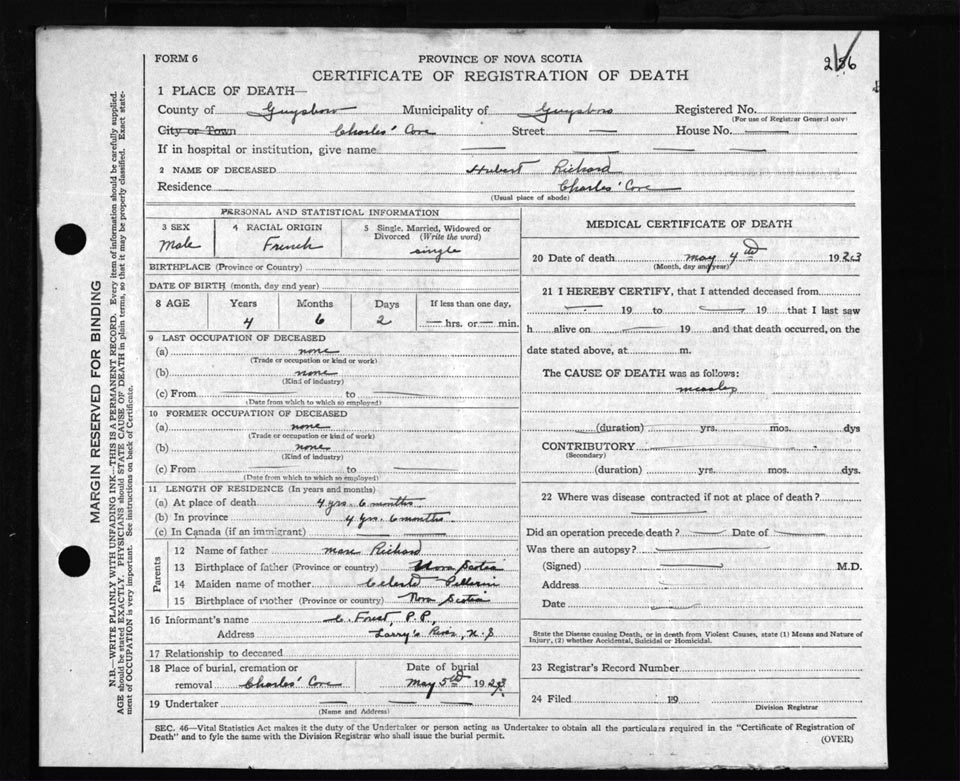 FORM 6
PROVINCE OF NOVA SCOTIA
256
CERTIFICATE OF REGISTRATION OF DEATH
1 PLACE OF DEATH—
County of Guysboro Municipality of Guysboro Registered No.
(For use of Registrar General only)
City or Town Charles' Cove Street — House No. —
If in hospital or institution, give name — — — —
2 NAME OF DECEASED Hubert Richard
Residence Charles' Cove
(Usual place of abode)
PERSONAL AND STATISTICAL INFORMATION
3 SEX Male
4 RACIAL ORIGIN French
5 Single, Married, Widowed or Divorced (Write the word) single
BIRTHPLACE (Province or Country)
DATE OF BIRTH (month, day and year)
8 AGE Years Months Days If less than one day,
4 6 2 — hrs. or — min.
9 LAST OCCUPATION OF DECEASED
(a) none
(Trade or occupation or kind or work)
(b) none
(Kind of industry)
(c) From — to —
(Date from which to which so employed)
10 FORMER OCCUPATION OF DECEASED
(a) none
(Trade or occupation or kind of work)
(b) none
(Kind of industry)
(c) From — to —
(Date from which to which so employed)
11 LENGTH OF RESIDENCE (In years and months)
(a) At place of death 4 yrs. 6 months
(b) In province 4 yrs. 6 months
(c) In Canada (if an immigrant) —
Parents
12 Name of father Richard
13 Birthplace of father (Province or country) Nova Scotia
14 Maiden name of mother
15 Birthplace of mother (Province or country) Nova Scotia
16 Informant's name P.P.,
Address Larry's River, N.S
17 Relationship to deceased
18 Place of burial, cremation or removal Charles' Cove
Date of burial May 5th 1923
19 Undertaker — — —
(Name and Address)
MEDICAL CERTIFICATE OF DEATH
20 Date of death May 4th 1923
(Month, day and year)
21 I HEREBY CERTIFY, that I attended deceased from
— 19 to — 19 that I last saw
h alive on — 19 and that death occurred, on the
date stated above, at m.
The CAUSE OF DEATH was as follows:
(duration) yrs. mos. dys
CONTRIBUTORY —
(Secondary)
(duration) yrs. mos. dys.
22 Where was disease contracted if not at place of death?
—
Did an operation precede death? — Date of —
Was there an autopsy? —
(Signed) — M.D.
Address —
Date —
State the Disease causing Death, or in death from Violent Causes, state (1) Means and Nature of
Injury, (2) whether Accidental, Suicidal or Homicidal.
23 Registrar's Record Number
24 Filed 19
Division Registrar
SEC. 46—Vital Statistics Act makes it the duty of the Undertaker or person acting as Undertaker to obtain all the particulars required in the "Certificate of Registration of
Death" and to fyle the same with the Division Registrar who shall issue the burial permit.
(OVER)
MARGIN RESERVED FOR BINDING
N.B.—WRITE PLAINLY WITH UNFADING INK—THIS IS A PERMANENT RECORD. Every item of information should be carefully supplied.
AGE should be stated EXACTLY. PHYSICIANS should STATE CAUSE OF DEATH in plain terms, so that it may be properly classified. Exact state-
ment of OCCUPATION is very important. See instructions on back of Certificate.